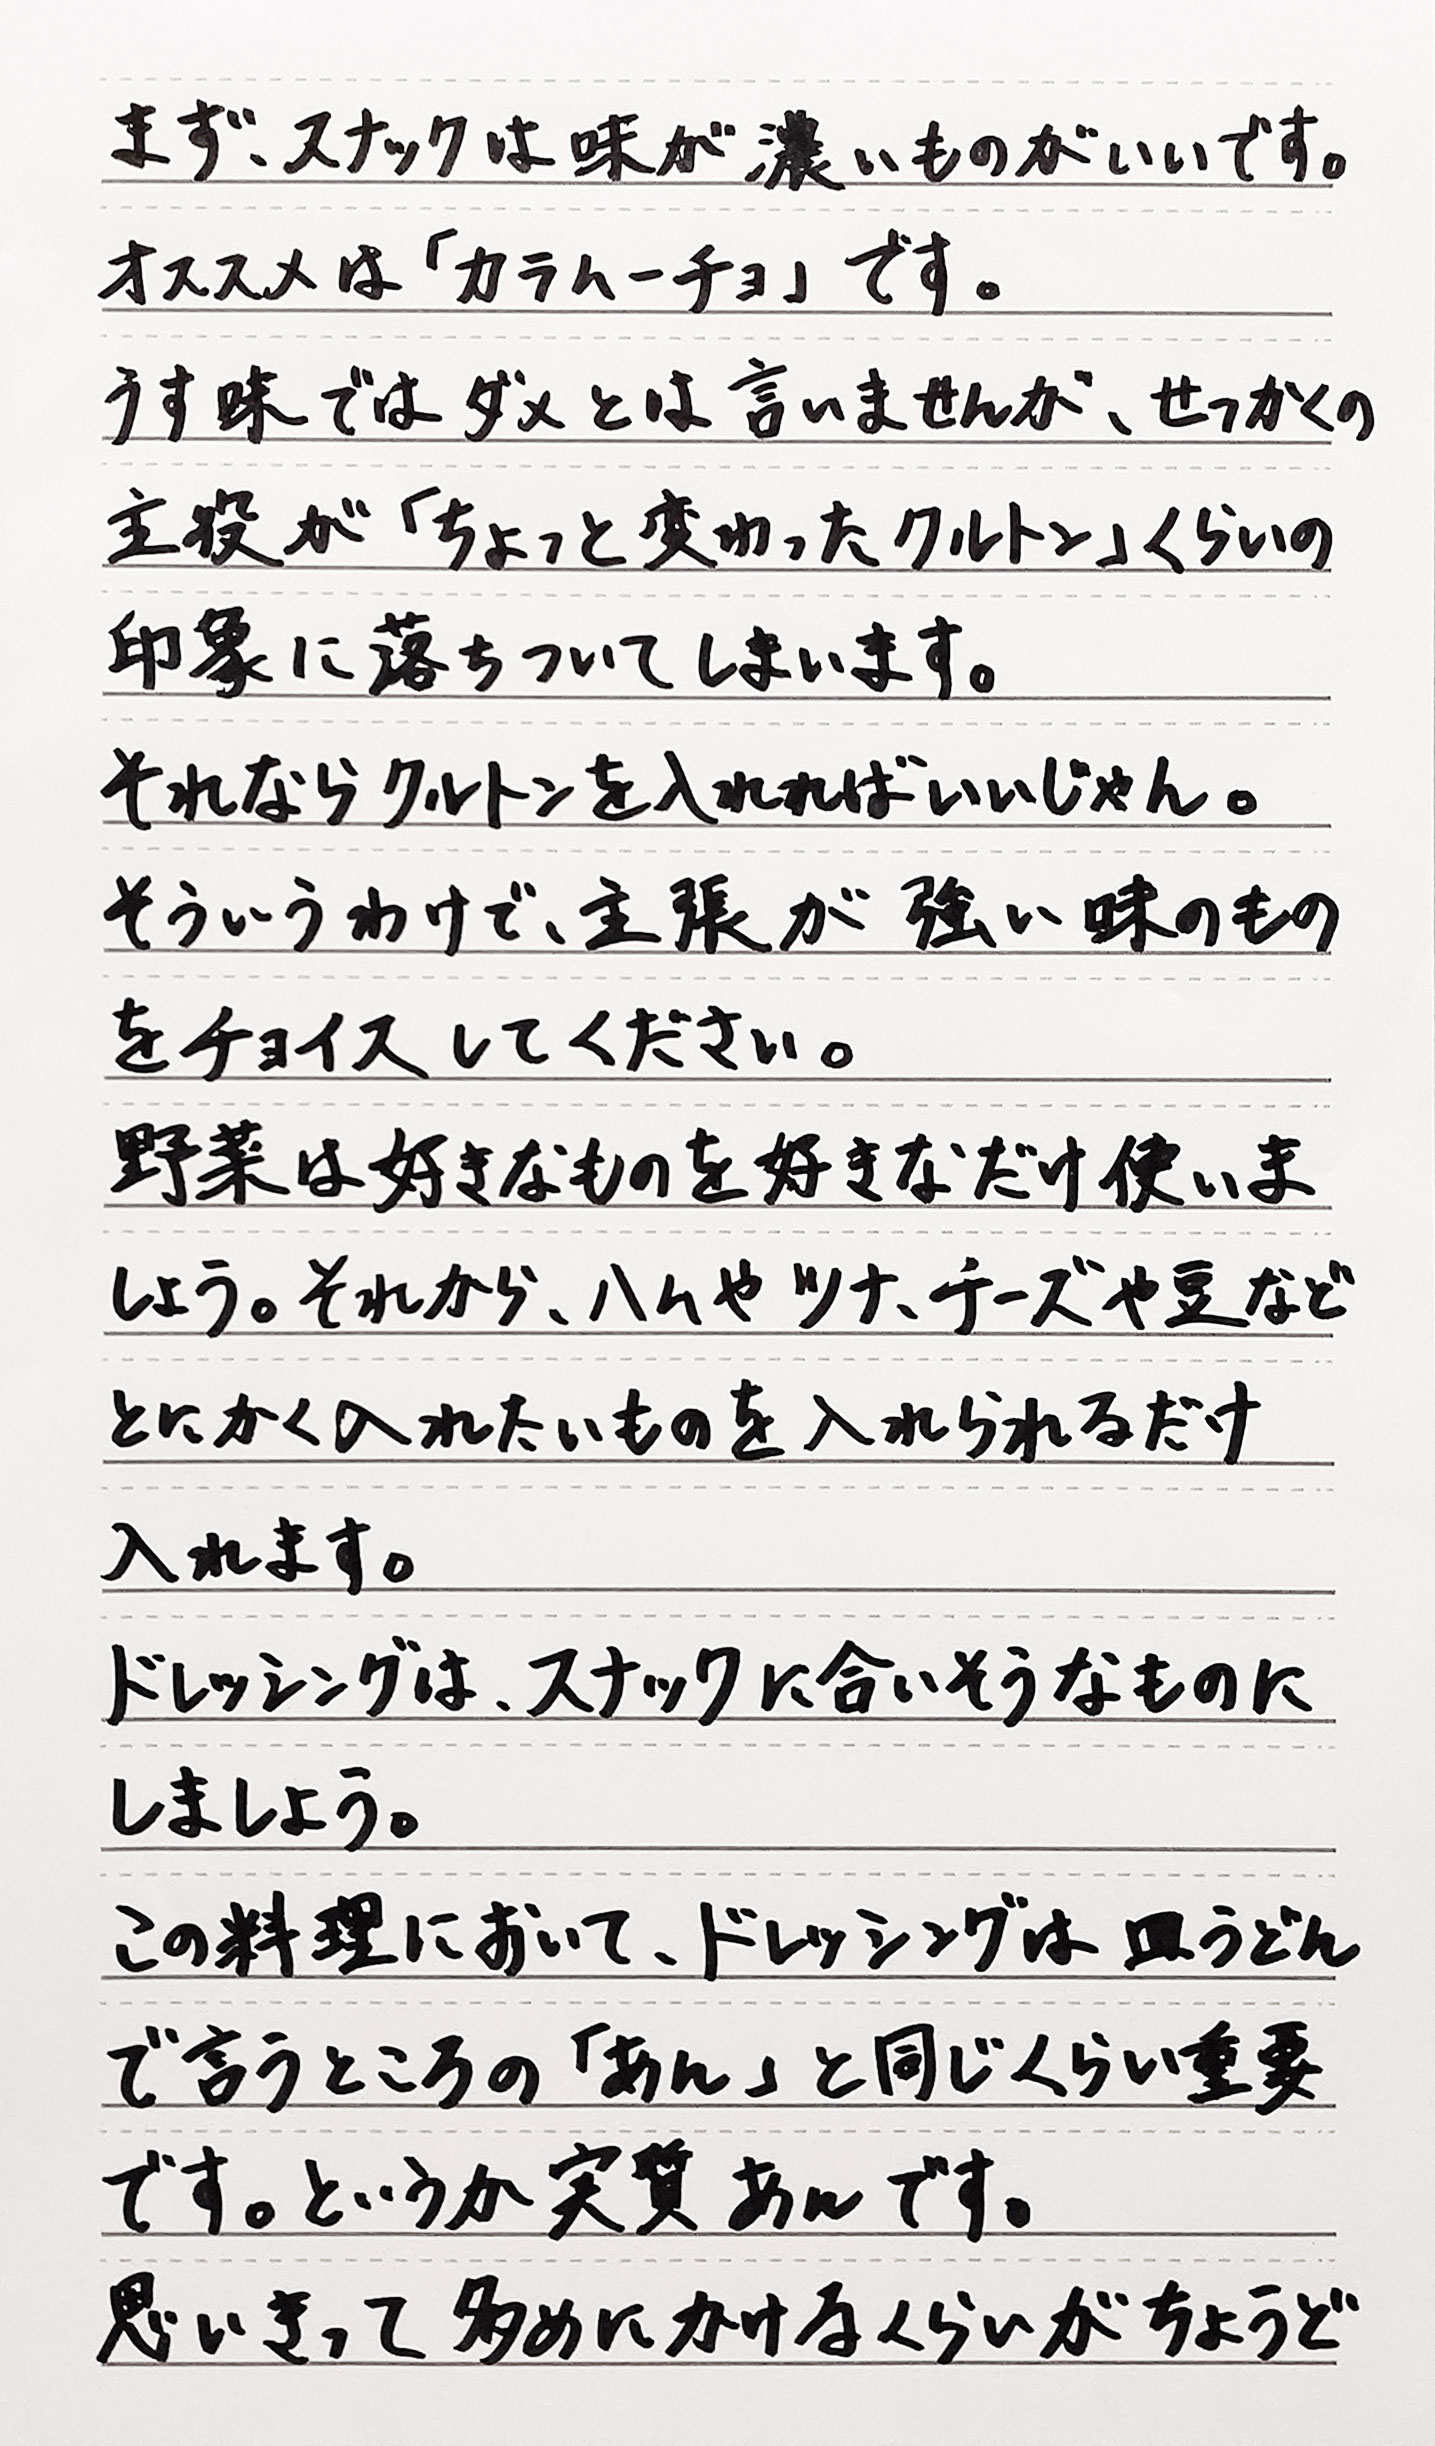 まず、スナックは味が濃いものがいいです。
オススメは「カラムーチョ」です。
うす味ではダメとは言いませんが、せっかくの
主役が「ちょっと変わったクルトン」くらいの
印象に落ちついてしまいます。
それならクルトンを入れればいいじゃん。
そういうわけで、主張が強い味のもの
をチョイスしてください。
野菜は好きなものを好きなだけ使いま
しょう。それから、ハムやツナ、チーズや豆など
とにかく入れたいものを入れられるだけ
入れます。
ドレッシングは、スナックに合いそうなものに
しましょう。
この料理において、ドレッシングは皿うどん
で言うところの「あん」と同じくらい重要
です。というか実質あんです。
思いきって多めにかけるくらいがちょうど